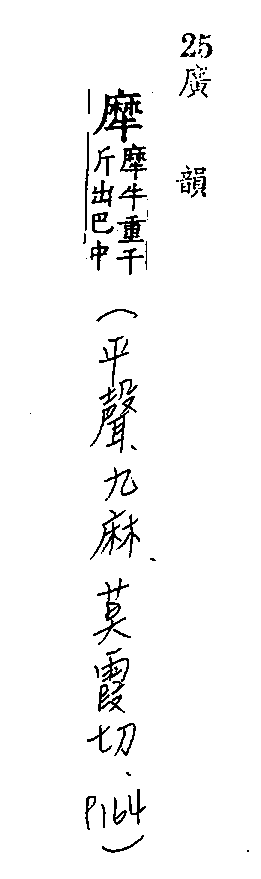 25
廣韻
犘犘牛重千斤出巴中(平聲、九麻、莫霞切、P164)